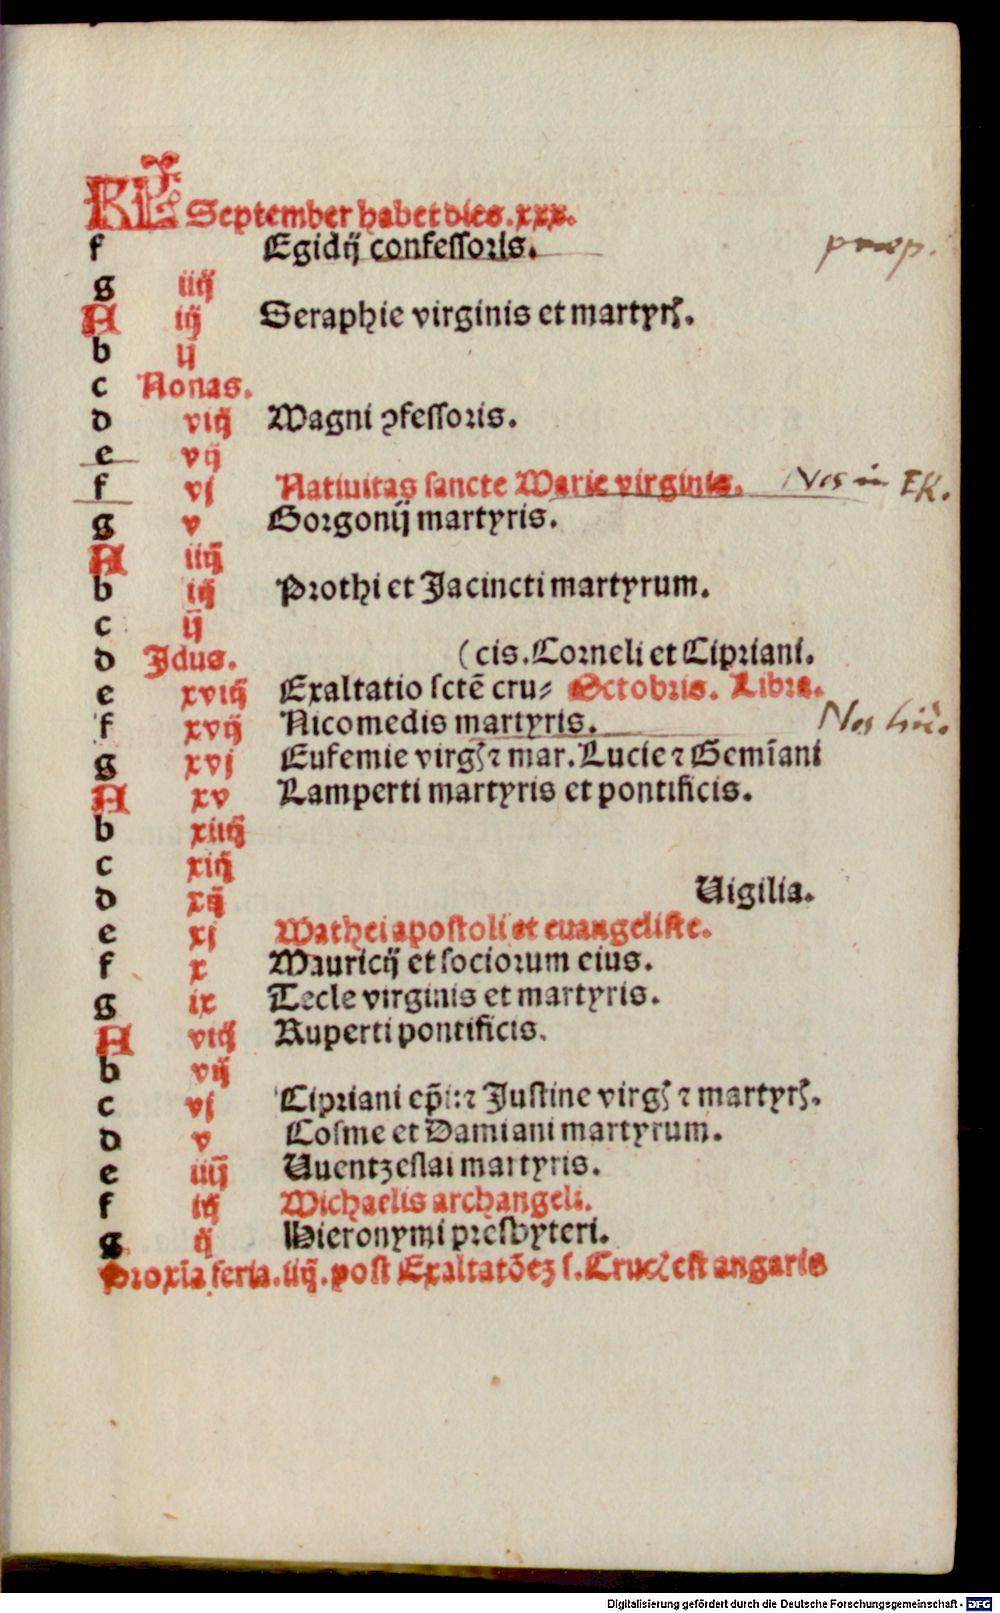 KL September habet dies .xxx.
f Egidij confessoris. præp.
g iiij
A iij Seraphie virginis et martyrꝭ.
b ij
c Nonas.
d viij Magni ꝯfessoris.
e vij
f vj Natiuitas sancte Marie virginis. Nos in EK.
g v Gorgonij martyris.
A iiij
b iij Prothi et Jacincti martyrum.
c ij
d Jdus. (cis. Corneli et Cipriani.
e xviij Exaltatio sctē cru⸗ Octobris. Libra.
f xvij Nicomedis martyris. Nos
g xvj Eufemie virgꝭ ⁊ mar. Lucie ⁊ Gemīani
A xv Lamperti martyris et pontificis.
b xiiij
c xiij
d xij Uigilia.
e xj Mathei apostoli et euangeliste.
f x Mauricij et sociorum eius.
g ix Tecle virginis et martyris.
A viij Ruperti pontificis.
b vij
c vj Cipriani ep̄i: ⁊ Justine virgꝭ ⁊ martyrꝭ.
d v Cosme et Damiani martyrum.
e iiij Uuentzeslai martyris.
f iij Michaelis archangeli.
g ij Hieronymi presbyteri.
Proxīa feria .iiij. post Exaltatōeꝫ s. Crucꝭ est angaria
Digitalisierung gefördert durch die Deutsche Forschungsgemeinschaft - DFG